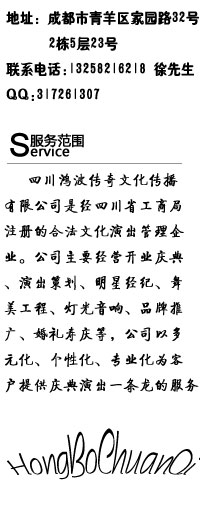 地址：成都市青羊区家园路32号
2栋5层23号
联系电话:13258216218 徐先生
QQ:317261307
服务范围
Service
四川鸿波传奇文化传播
有限公司是经四川省工商局
注册的合法文化演出管理企
业。公司主要经营开业庆典
、演出策划、明星经纪、舞
美工程、灯光音响、品牌推
广、婚礼寿庆等，公司以多
元化、个性化、专业化为客
户提供庆典演出一条龙的服务
HongBoChuanQi